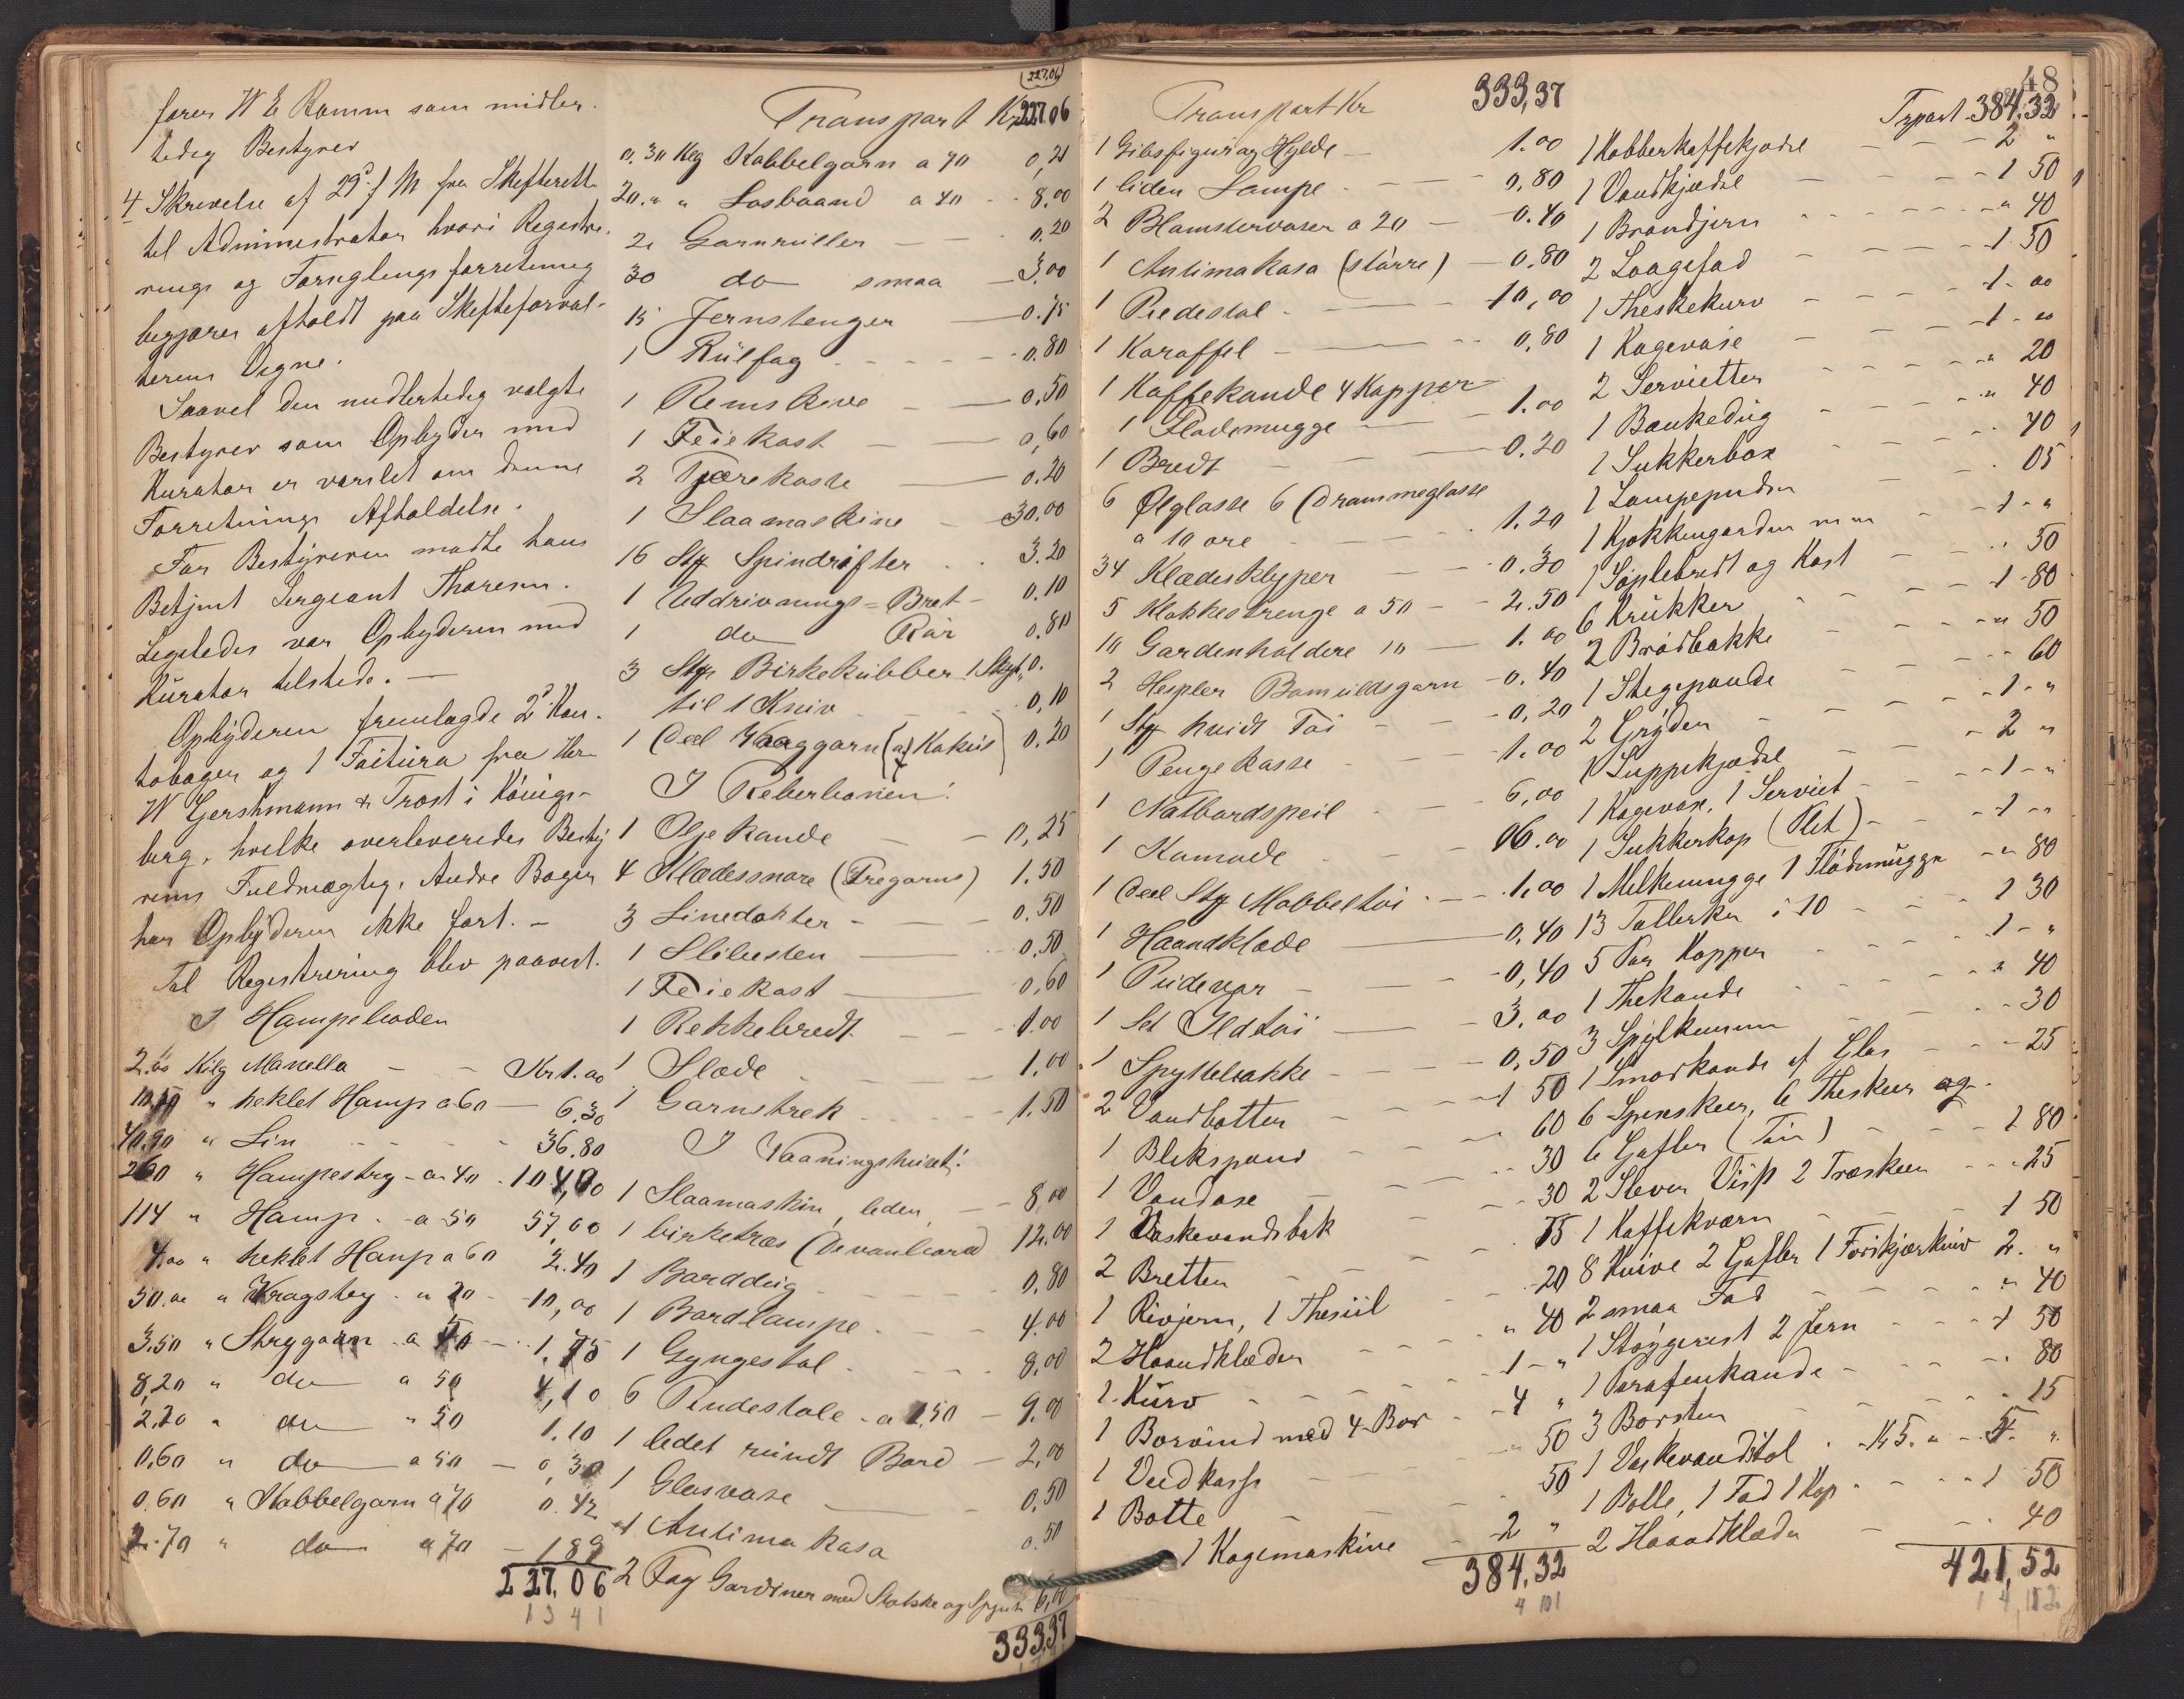 fører W E Ramm som midler-
tidig Bestyrer
4 Skrivelse af 29d f M fra Skifterett
til Administrator hvori Registre-
rings og Forseglings forretning
begjæres afholdt paa Skifteforval-
terens Vegne.
Saavel den midlertidig valgte
Bestyrer som Opbyder med
Kurator er varslet om denne
Forretnings Afholdelse.
For Bestyreren mødte hans
Betjent Sergeant Thoresen.
Ligeledes var Opbyderen med
Kurator tilstede. —
Opbyderen fremlagde 2de Kon-
tobøger og 1 Faktura fra Her
W Gershmann & Trost i Königs-
berg, hvilke overleveredes Besty
rens Fuldmægtig. Andre Bøger
har Opbyderen ikke ført. —
Til Registrering blev paavist.
I Hampeboden
2.00 Kilg Manella — Kr 1.00
10.50 " heklet Hamp a 60 — 6.30
40.90 " Lin 36.80
260 " Hampestry - a 40 . 104,00
114 " Hamp. - a 50 57,00
4.00 " heklet Hamp a 60 2.40
50.00 " Vragstry - a 20 - 10,00
3.50 " Strygarn a 50 — 1.75
8,20 " do a 50 4,10
2.20 " do " 50 1.10
0,60 " do a 50 — 0,30
0.60 " Kabbelgarn a 70 0.42
2.70 " do a 70 — 1 89
227,06
1341
(227.06)
Transport Kr 227.06
0,30 Klg Kabbelgarn a 70 0,21
20. " " Losbaand a 40 8.00
2 Garnruller — 0.20
30 do smaa — 3.00
15 Jernstenger — 0.75
1 Rülfag - 0.80
1 Remskive — 0,50
1 Feiekost — 0,60
2 Tjærekoste — 0.20
1 Slaamaskine — 30.00
16 Stk Spindrifter . . 3.20
1 Uddrivnings = Bret - 0.10
1 do Rør 0.80
3 Stk Birkekubber 1 Skaft
til 1 Kniv 0,10
1 Deel Vraggarn (af Kokus) 0.20
I Reberbanen!
1 Oljekande — 0,25
4 Klædessnore (Tregarns) 1.50
3 Linedokter - 0.50
1 Slibesten — 0,50
1 Feiekost — 0,60
1 Rekkebredt — 1.00
1 Slæde 1,00
1 Garnstrek 1.50
I Vaaningshuset!
1 Slaamaskin, liden, — 8,00
1 birketræs Divanbord 12.00
1 Borddug 0,80
1 Bordlampe 4.00
1 Gyngestol 8,00
6 Pindestole - a 1.50 — 9.00
1 lidet rundt Bord — 2,00
1 Glasvase 0,50
1 Antimakasa 0.50
2 Fag Gardiner med 6,00
333,37
48
Transport Kr 333,37
1 Gibsfigur og Hylde — 1.00
1 liden Lampe — 0,80
2 Blomstervaser a 20 — 0.40
1 Antimakasa (större) — 0.80
1 Piedestal — 10,00
1 Karaffel — 0,80
1 Kaffekande 4 Kopper
1 Flødemugge — 1.00
1 Bredt — 0.20
6 Ølglasse 6 Drammeglasse
a 10 øre 1.20
34 Klædesklyper — 0.30
5 Klokkestrenge a 50 — 2.50
10 Gardenholdere 10 — 1.00
2 Hespler Bomuldsgarn - 0.40
1 Stk hvidt Tøi 0,20
1 Pengekasse 1.00
1 Natbordspeil 6,00
1 Komode 06.00
1 Deel Stk Mobbeltøi 1,00
1 Haandklæde — 0,40
1 Pudevar — 0,40
1 Set Ildtøi — 3.00
1 Spyttebakke 0,50
2 Vandbøtter 1 50
1 Blikspand 60
1 Vandøse 30
1 Vaskevandsbak 30
2 Bretter 75
1 Rivjern, 1 Thesiil 20
2 Haandklæder " 40
1 Kurv 1 - "
1 Borvind med 4 Bor 4 "
1 Vedkasse 50
1 Bøtte 50
1 Kogemaskine 2 "
384,32
4 101
Trpart 384.32
1 Kobberkaffekjedel 2 "
1 Vandkjedel 1 50
1 Brændjern " 40
2 Laagefad 1.50
1 Theskekurv 1.00
1 Kagevase 1.00
2 Servietter " 20
1 Bankedug " 40
1 Sukkerbøx 40
1 Lampepuder 05
1 Kjøkkengarden m m 1 - "
1 Søplebredt og Kost 50
6 Krukker 1 - 80
2 Brødbakke " 50
1 Stegepande 60
2 Gryder 1 - "
1 Suppekjedel 2 "
1 Kagevase, 1 Serviet 1 - "
1 Sukkerkop (Plet) 1 - "
1 Melkemugge 1 Flødemugge " 80
13 Tallerker i 10 1 30
5 Par Kopper 1 - "
1 Thekande " 40
3 Spylkummer 30
1 Smørkande af Glas 25
6 Spiseskeer, 6 Theskeer og
6 Gafler (Tin) 1 80
2 Slever Visp 2 Træskeer 25
1 Kaffekværn 1 50
8 Knive 2 Gafler 1 Forskjærkniv 2. "
2 smaa Fad " 40
1 Strygerist 2 Jern 1 50
1 Parafinkande 80
3 Børster 15
1 Vaskevandstol - Kr 5. " 5. "
1 Bolle, 1 Fad 1 Kop 1 50
2 Haandklæder 40
421,52